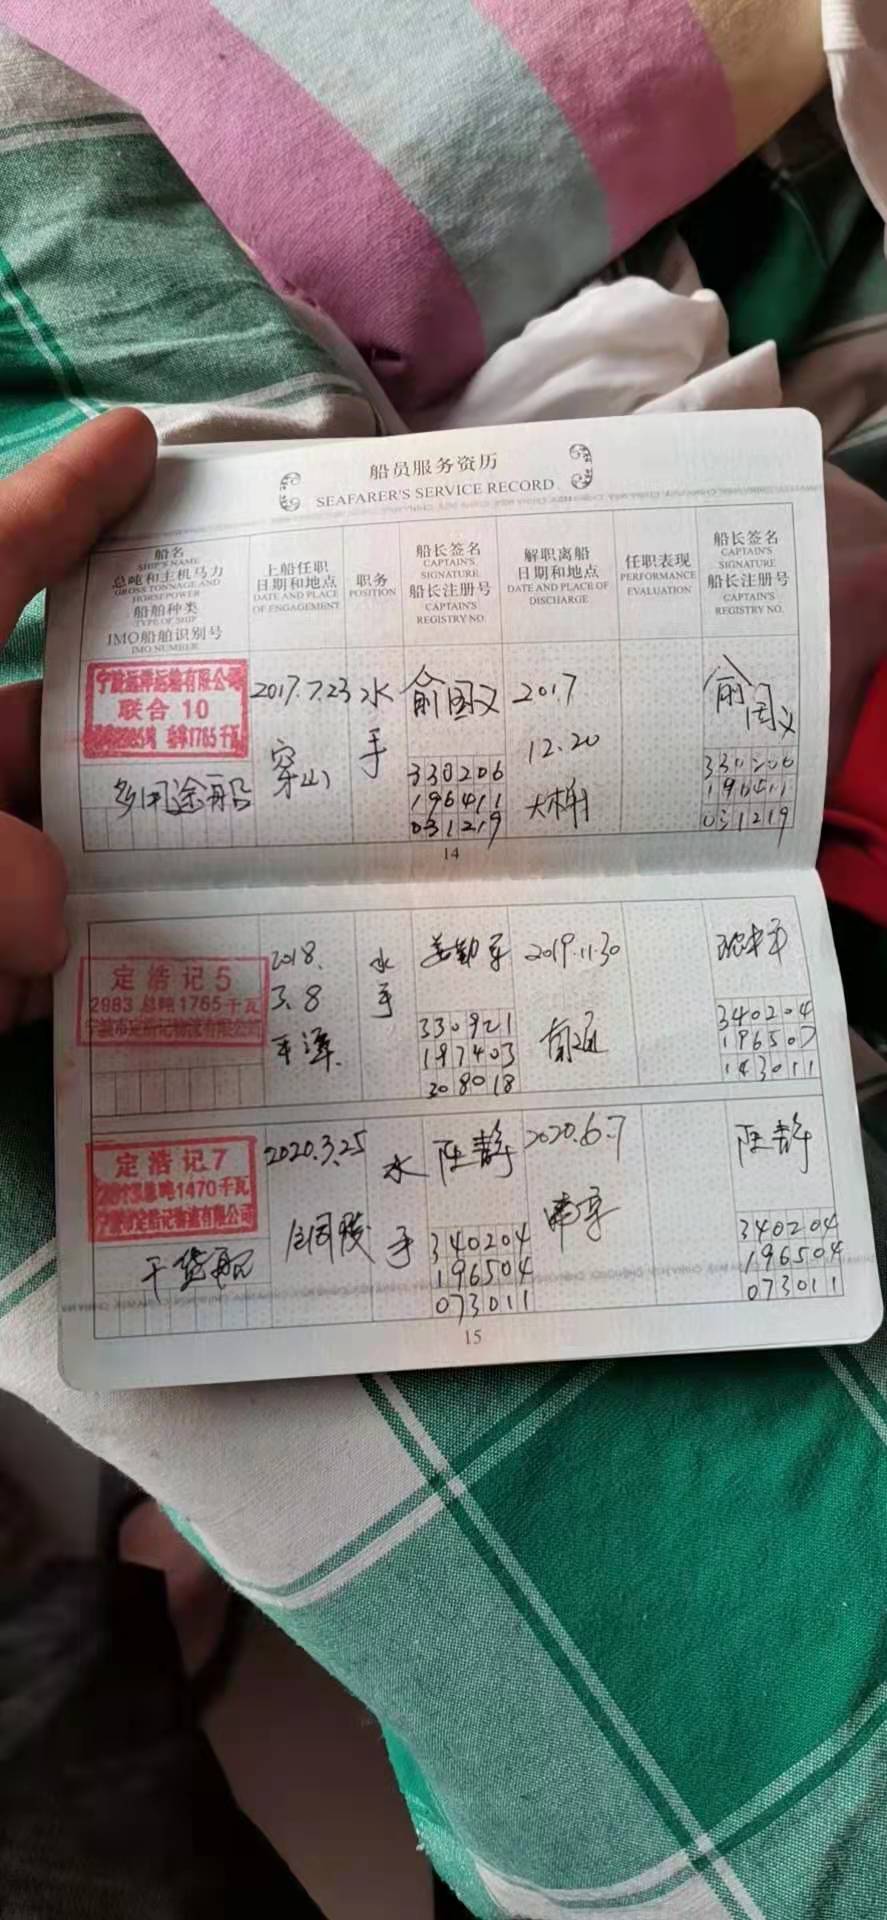 船员服务资历
SEAFARER'S SERVICE RECORD
船名
SHIP'S NAME
总吨和主机马力
GROSS TONNAGE AND
HORSEPOWER
船舶种类
TYPE OF SHIP
IMO船舶识别号
IMO NUMBER
上船任职
日期和地点
DATE AND PLACE
OF ENGAGEMENT
职务
POSITION
船长签名
CAPTAIN'S
SIGNATURE
船长注册号
CAPTAIN'S
REGISTRY NO.
解职离船
日期和地点
DATE AND PLACE OF
DISCHARGE
任职表现
PERFORMANCE
EVALUATION
船长签名
CAPTAIN'S
SIGNATURE
船长注册号
CAPTAIN'S
REGISTRY NO.
宁波远洋运输有限公司
联合 10
1765千瓦
多用途船
2017.7.23
穿山
水
手
俞国义
330206
196411
031219
2017
12.20
大榭
俞
国义
330206
196411
031219
14
定浩记5
2983 总吨1765千瓦
宁波市定浩记物流有限公司
2018.
3.8
平潭
水
手
330921
197403
208018
2019.11.30
南通
340204
196507
143011
定浩记7
总吨1470千瓦
宁波市定浩记物流有限公司
干货船
2020.3.25
水
手
静
340204
196504
073011
2020.6.7
南京
静
340204
196504
073011
15